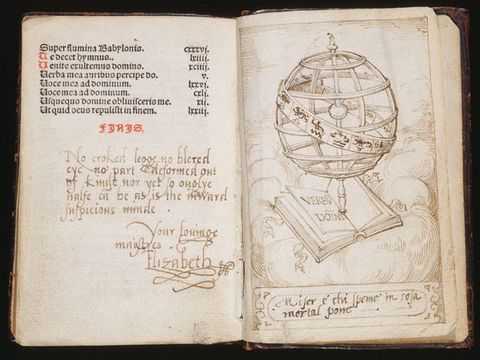 Super flumina Babylonis. cxxxvj.
Te decet hymnus. lxiiij.
Venite exultemus domino. xciiij.
Verba mea auribus percipe do. v.
Voce mea ad dominum. lxxvj.
Voce mea ad dominum. cxlj.
Usquequo domine oblivisceris me. xij.
Ut quid deus repulisti in finem. lxxiij.
FINIS.
No croked legge, no blered
eye, no part deformed out
of kinde, nor yet so ouglye
halfe can be as is the inward
suspicious minde
Your louinge
maistres
Elizabeth
VERBV
DOMI
Miser è chi speme in cosa
mortal pone